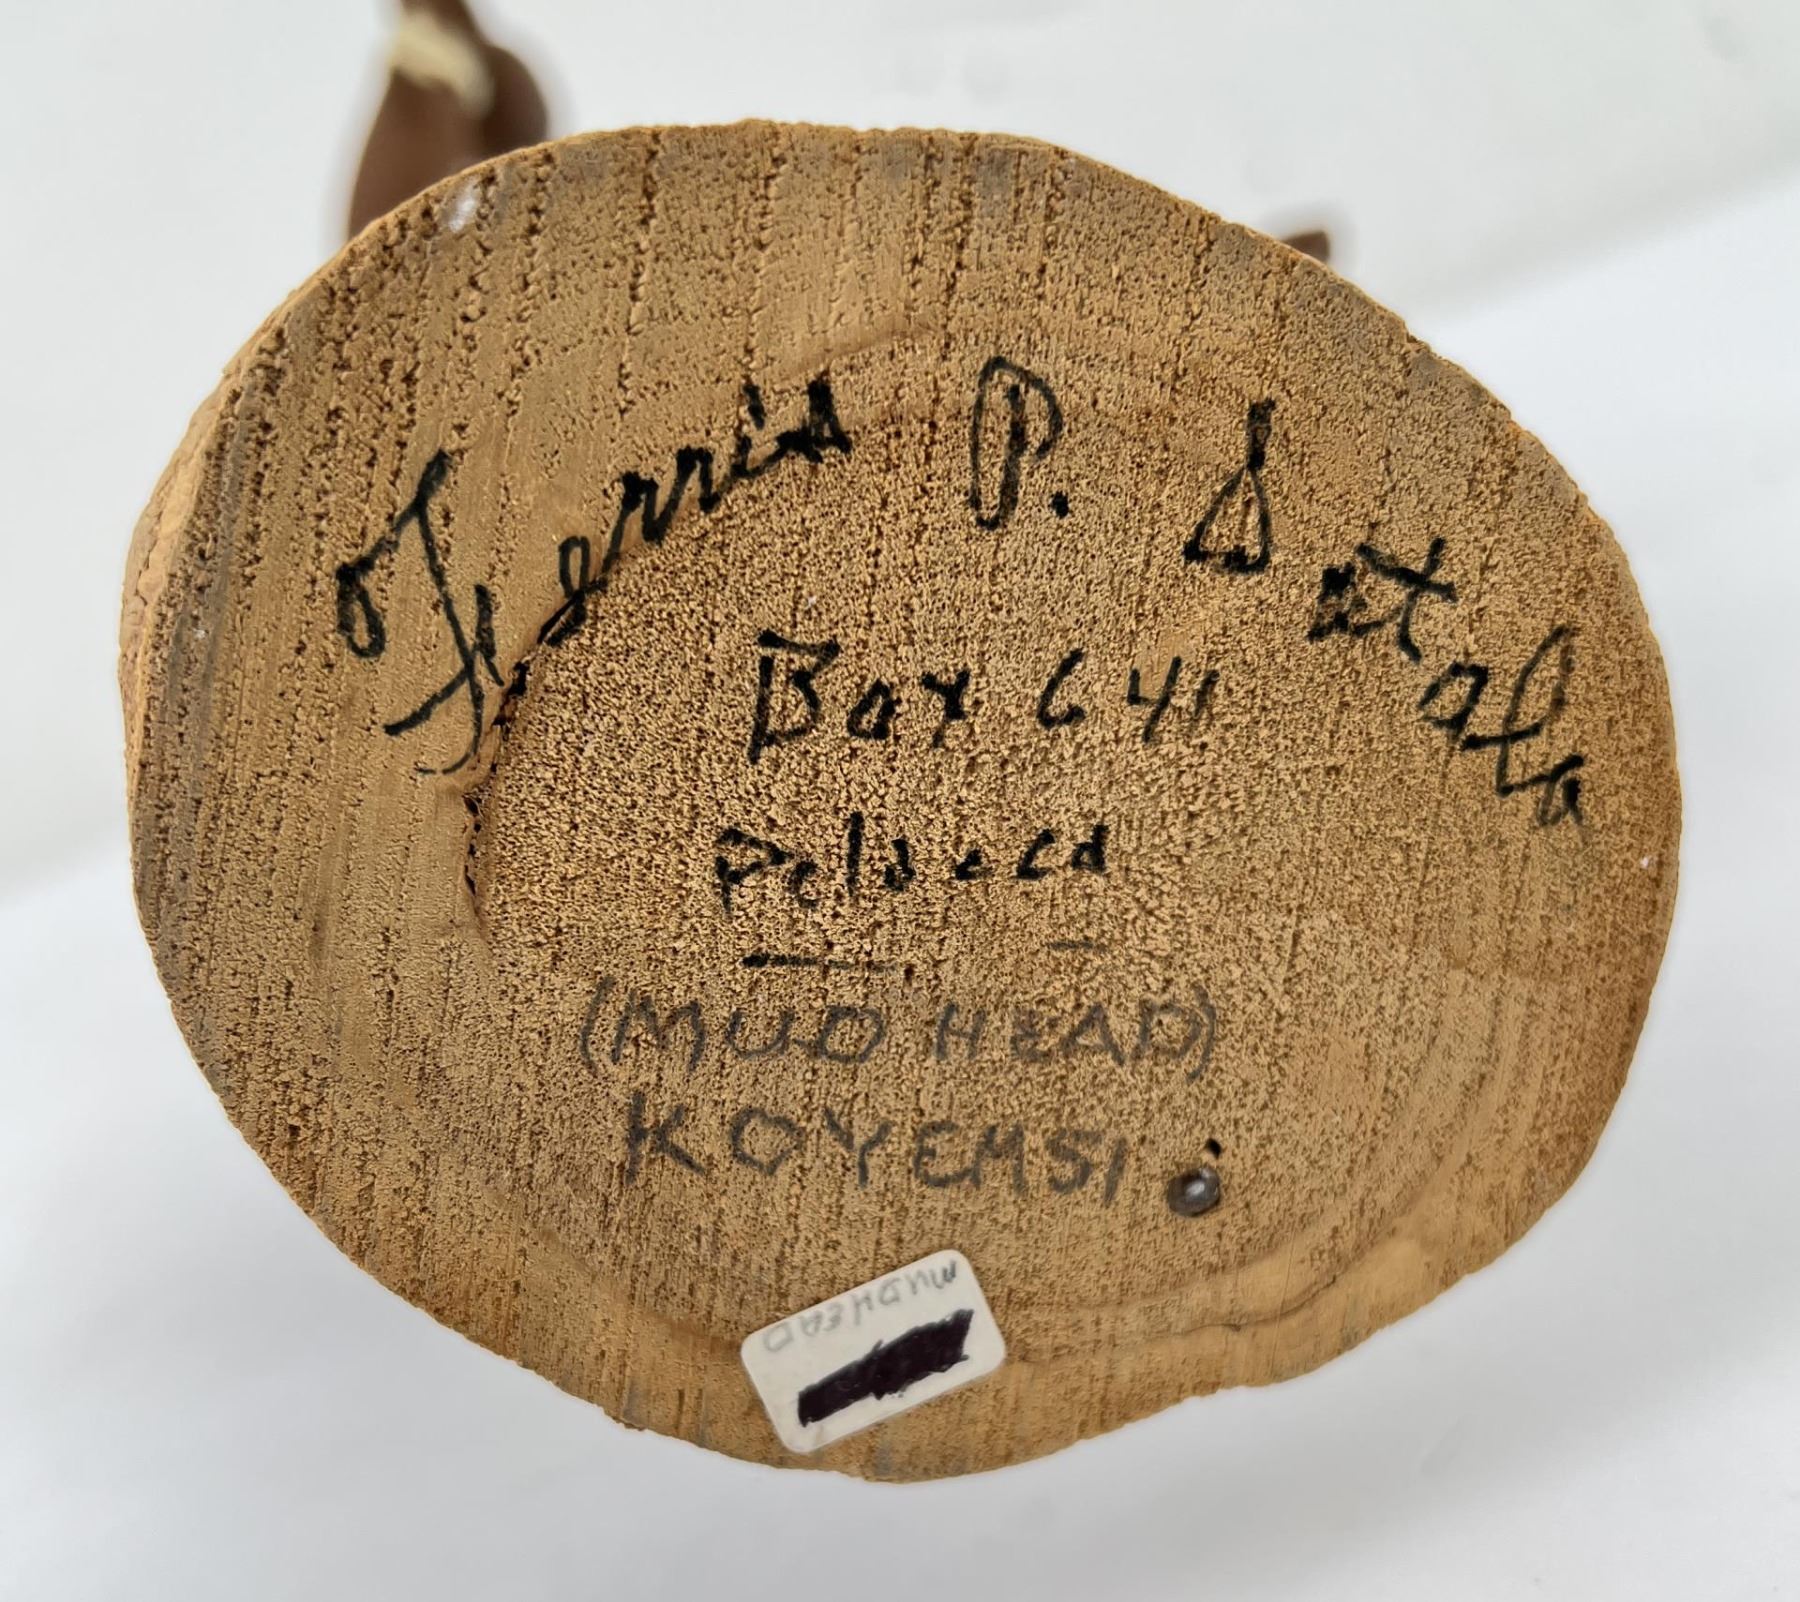 Ferris P. Satala
Box 641
Polacca
(MUD HEAD)
KOYEMSI
MUDHEAD